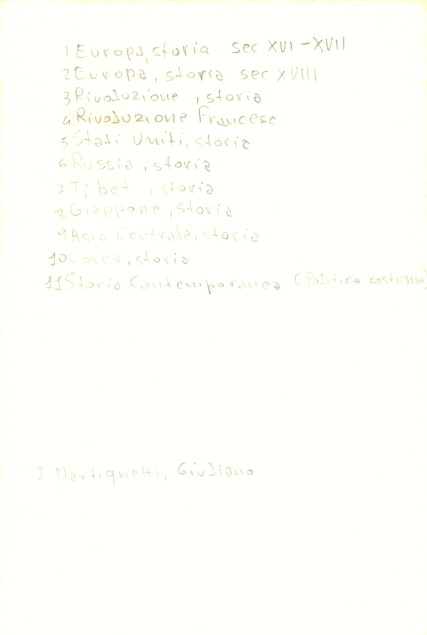 1 Europa, storia sec XVI-XVII
2 Europa, storia sec XVIII
3 Rivoluzione , storia
4 Rivoluzione Francese
5 Stati Uniti, storia
6 Russia , storia
7 Tibet , storia
8 Giappone , storia
9 Asia Centrale, storia
10 Corea , storia
11 Storia Contemporanea (Politica costume)
I Martignetti, Giuliano